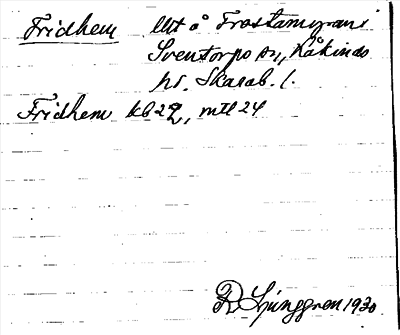 Fridhem Utt å Trastamyrans i
Sventorps sn, Kåkinds
hd. Skarab. l.
Fridhem kb 22, mtl 24
R Ljunggren 1930